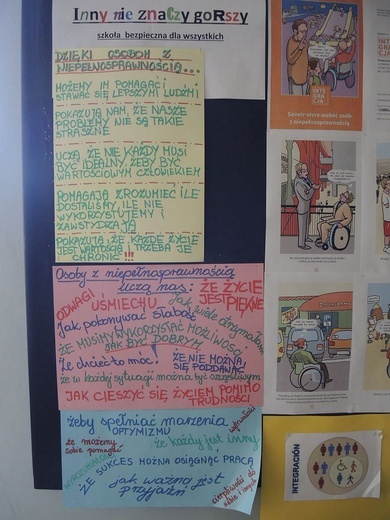 Inny nie znaczy goRszy
szkoła bezpieczna dla wszystkich
DZIĘKI OSOBOM Z
NIEPEŁNOSPRAWNOŚCIĄ...
MOŻEMY IM POMAGAĆ I
STAWAĆ SIĘ LEPSZYMI LUDŹMI
POKAZUJĄ NAM, ŻE NASZE
PROBLEMY NIE SĄ TAKIE
STRASZNE
UCZĄ, ŻE NIE KAŻDY MUSI
BYĆ IDEALNY, ŻEBY BYĆ
WARTOŚCIOWYM CZŁOWIEKIEM
POMAGAJĄ ZROZUMIEĆ ILE
DOSTALIŚMY, ILE NIE
WYKORZYSTUJEMY I
ZAWSTYDZAJĄ
POKAZUJĄ, ŻE KAŻDE ŻYCIE
JEST WARTOŚCIĄ I TRZEBA JE
CHRONIĆ !!!
Osoby z niepełnosprawnością
uczą nas: ŻE ŻYCIE
JEST PIĘKNE
ODWAGI
UŚMIECHU
Jak wiele otrzymałem
Jak pokonywać słabość
ŻE MUSIMY WYKORZYSTAĆ MOŻLIWOŚCI
JAK BYĆ DOBRYM
Że chcieć to móc!
ŻE NIE MOŻNA
SIĘ PODDAWAĆ
że w każdej sytuacji można być szczęśliwym
JAK CIESZYĆ SIĘ ŻYCIEM POMIMO
TRUDNOŚCI
żeby spełniać marzenia
OPTYMIZMU
że możemy
sobie pomagać
że każdy jest inny
ŻE SUKCES MOŻNA OSIĄGNĄĆ PRACĄ
jak ważna jest
przyjaźń
cierpliwości do
siebie i innych
INTE
GRA
CJA
Savoir-vivre wobec osób
z niepełnosprawnością
INTEGRACIÓN